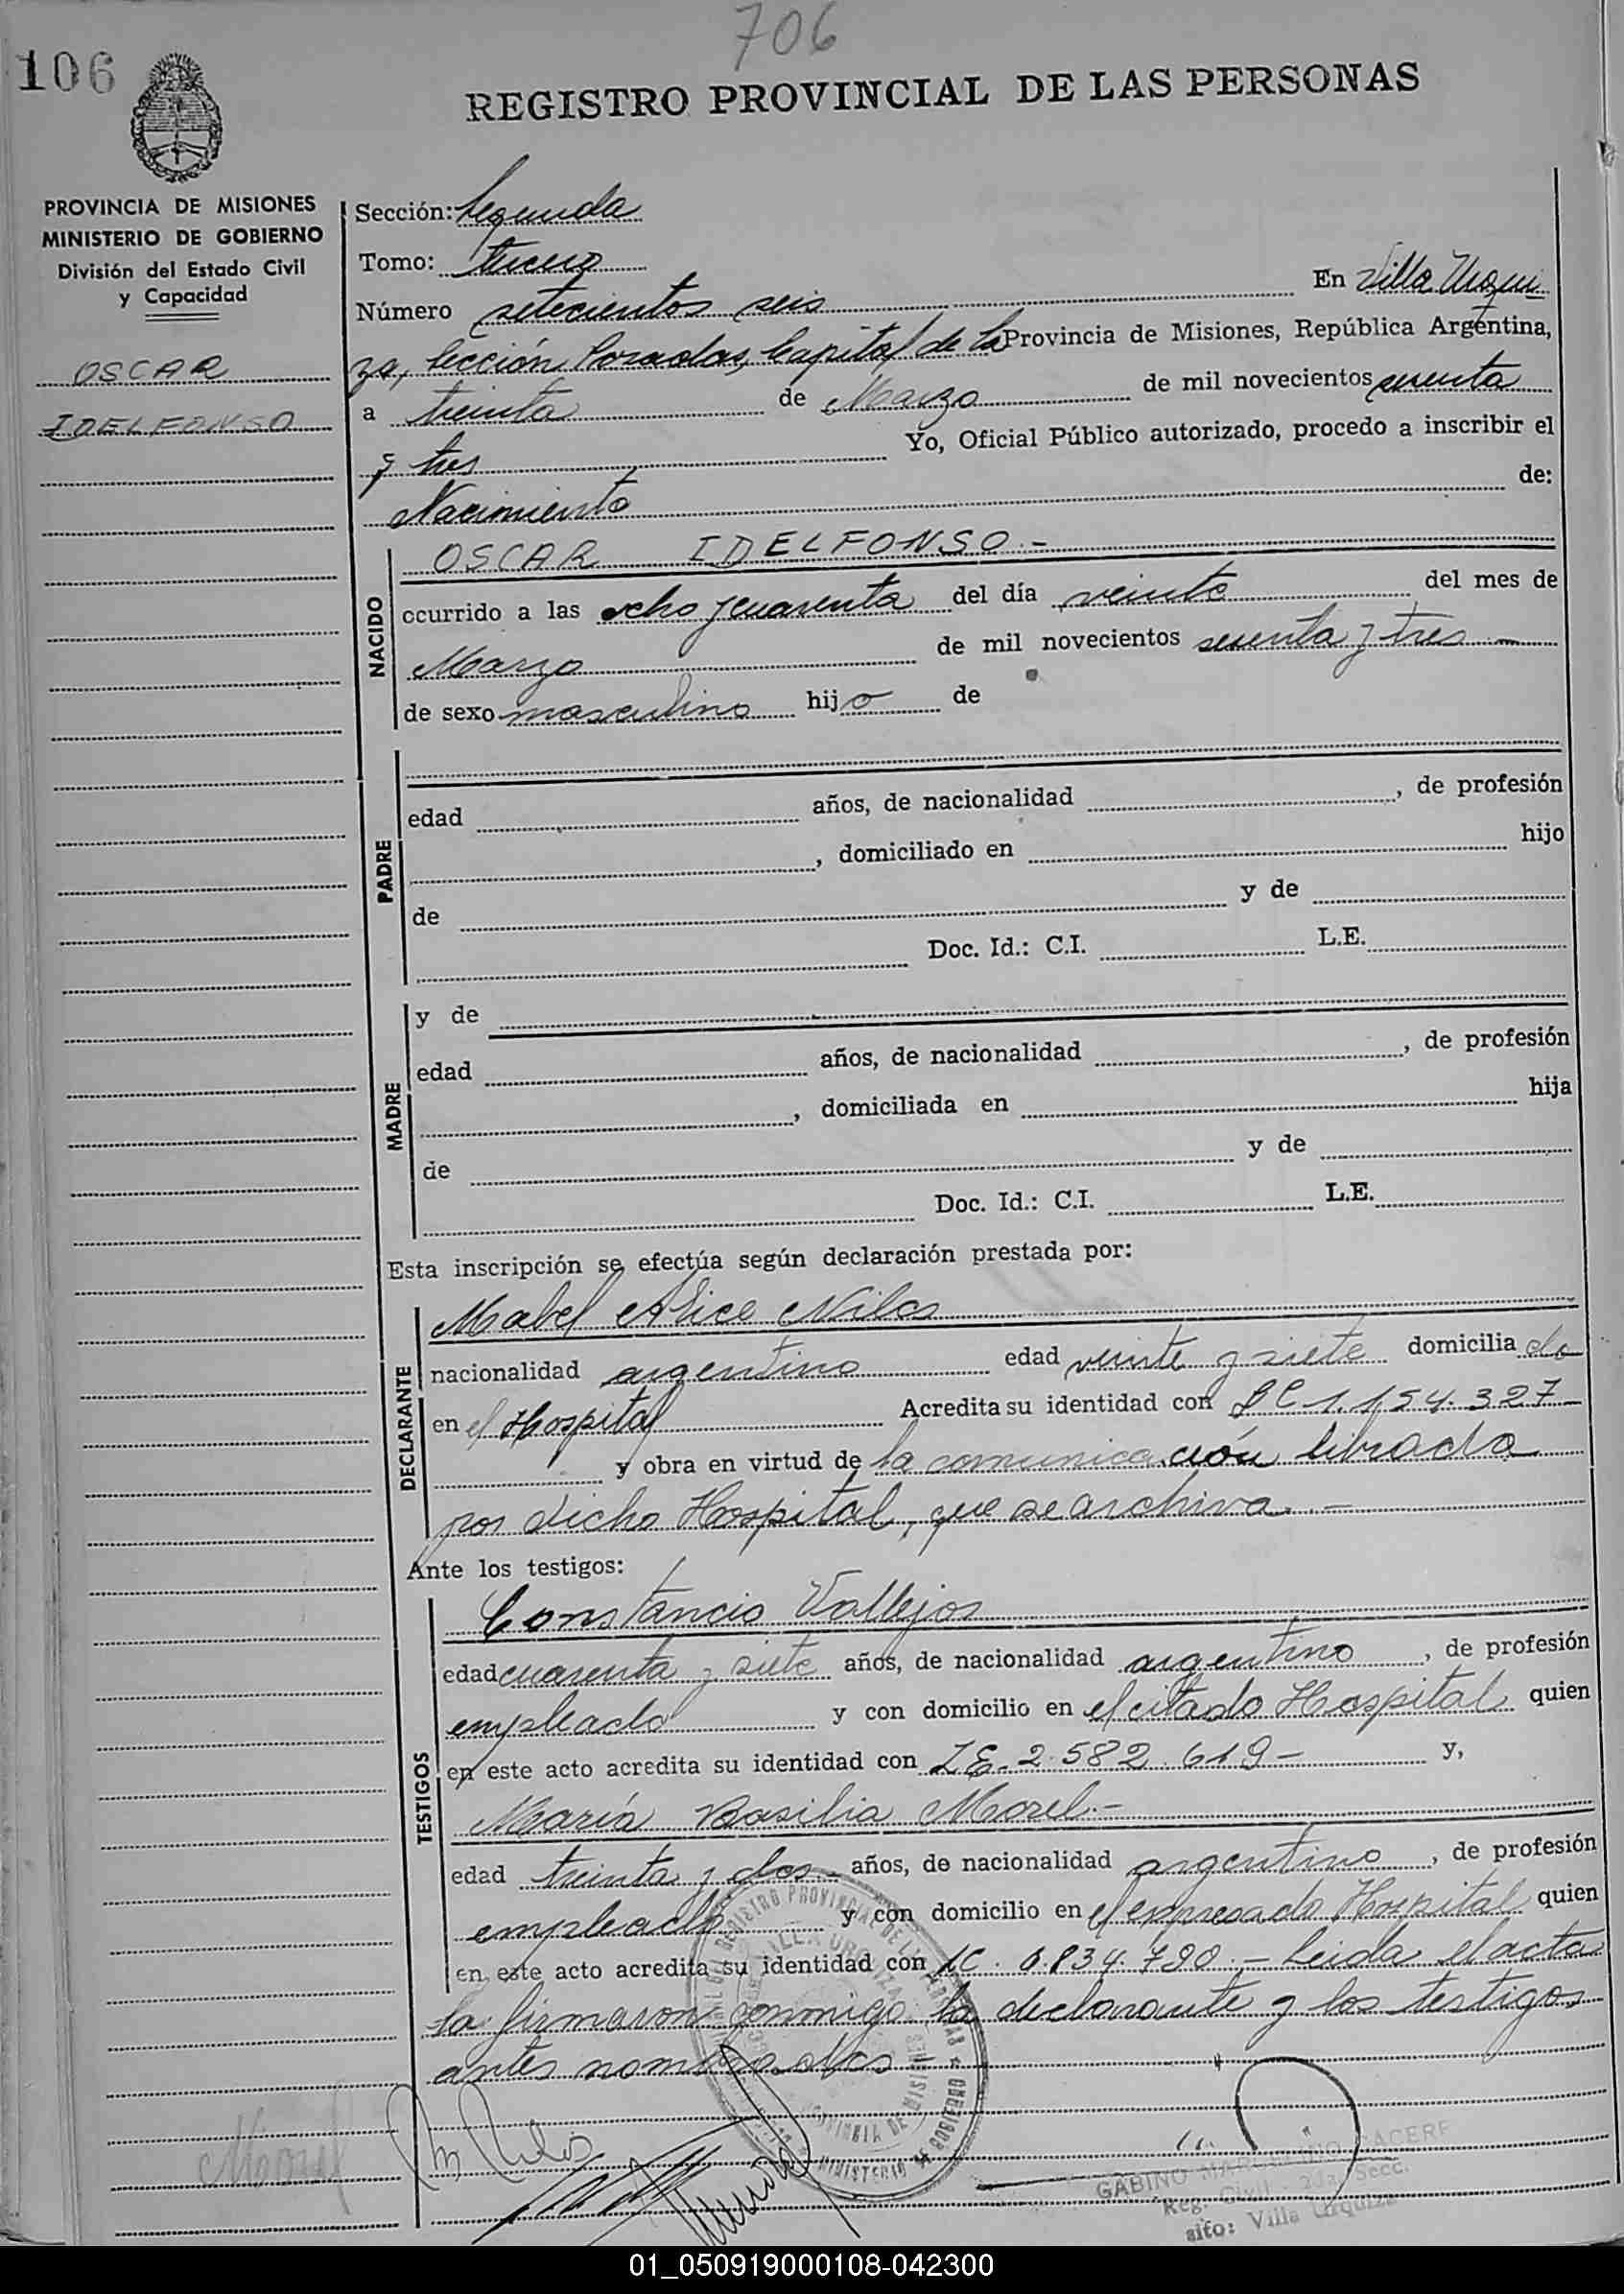 706
106
REGISTRO PROVINCIAL DE LAS PERSONAS
PROVINCIA DE MISIONES
MINISTERIO DE GOBIERNO
División del Estado Civil
y Capacidad
OSCAR
IDELFONSO
Sección: Segunda
Tomo: tercero
Número setecientos seis En Villa Urqui
za, Sección Posadas, Capital de la Provincia de Misiones, República Argentina,
a treinta de Marzo de mil novecientos sesenta
y tres Yo, Oficial Público autorizado, procedo a inscribir el
Nacimiento de:
NACIDO
OSCAR IDELFONSO.-
ocurrido a las ocho y cuarenta del día veinte del mes de
Marzo de mil novecientos sesenta y tres -
de sexo masculino hijo de
PADRE
edad años, de nacionalidad , de profesión
, domiciliado en hijo
de y de
Doc. Id.: C.I. L.E.
MADRE
y de
edad años, de nacionalidad , de profesión
, domiciliada en hija
de y de
Doc. Id.: C.I. L.E.
Esta inscripción se efectúa según declaración prestada por:
DECLARANTE
Mabel Alice
nacionalidad argentina edad veinte y siete domicilia da
en el Hospital Acredita su identidad con LC 1.154.327
y obra en virtud de la comunicación librada
por dicho Hospital, que se archiva.-
Ante los testigos:
TESTIGOS
Constancio Vallejos
edad cuarenta y siete años, de nacionalidad argentino , de profesión
empleado y con domicilio en el citado Hospital quien
en este acto acredita su identidad con LE. 2.582.619- y,
María Basilia Morel.-
edad treinta y dos años, de nacionalidad argentina , de profesión
empleada y con domicilio en el expresado Hospital quien
en este acto acredita su identidad con LC. 6.834.790.- Leida el acta
la firmaron conmigo la declarante y los testigos
antes nombrados
GABINO MARCELINO CACERE
Reg. Civil - 2da. Secc.
sito: Villa Urquiza
01_050919000108-042300